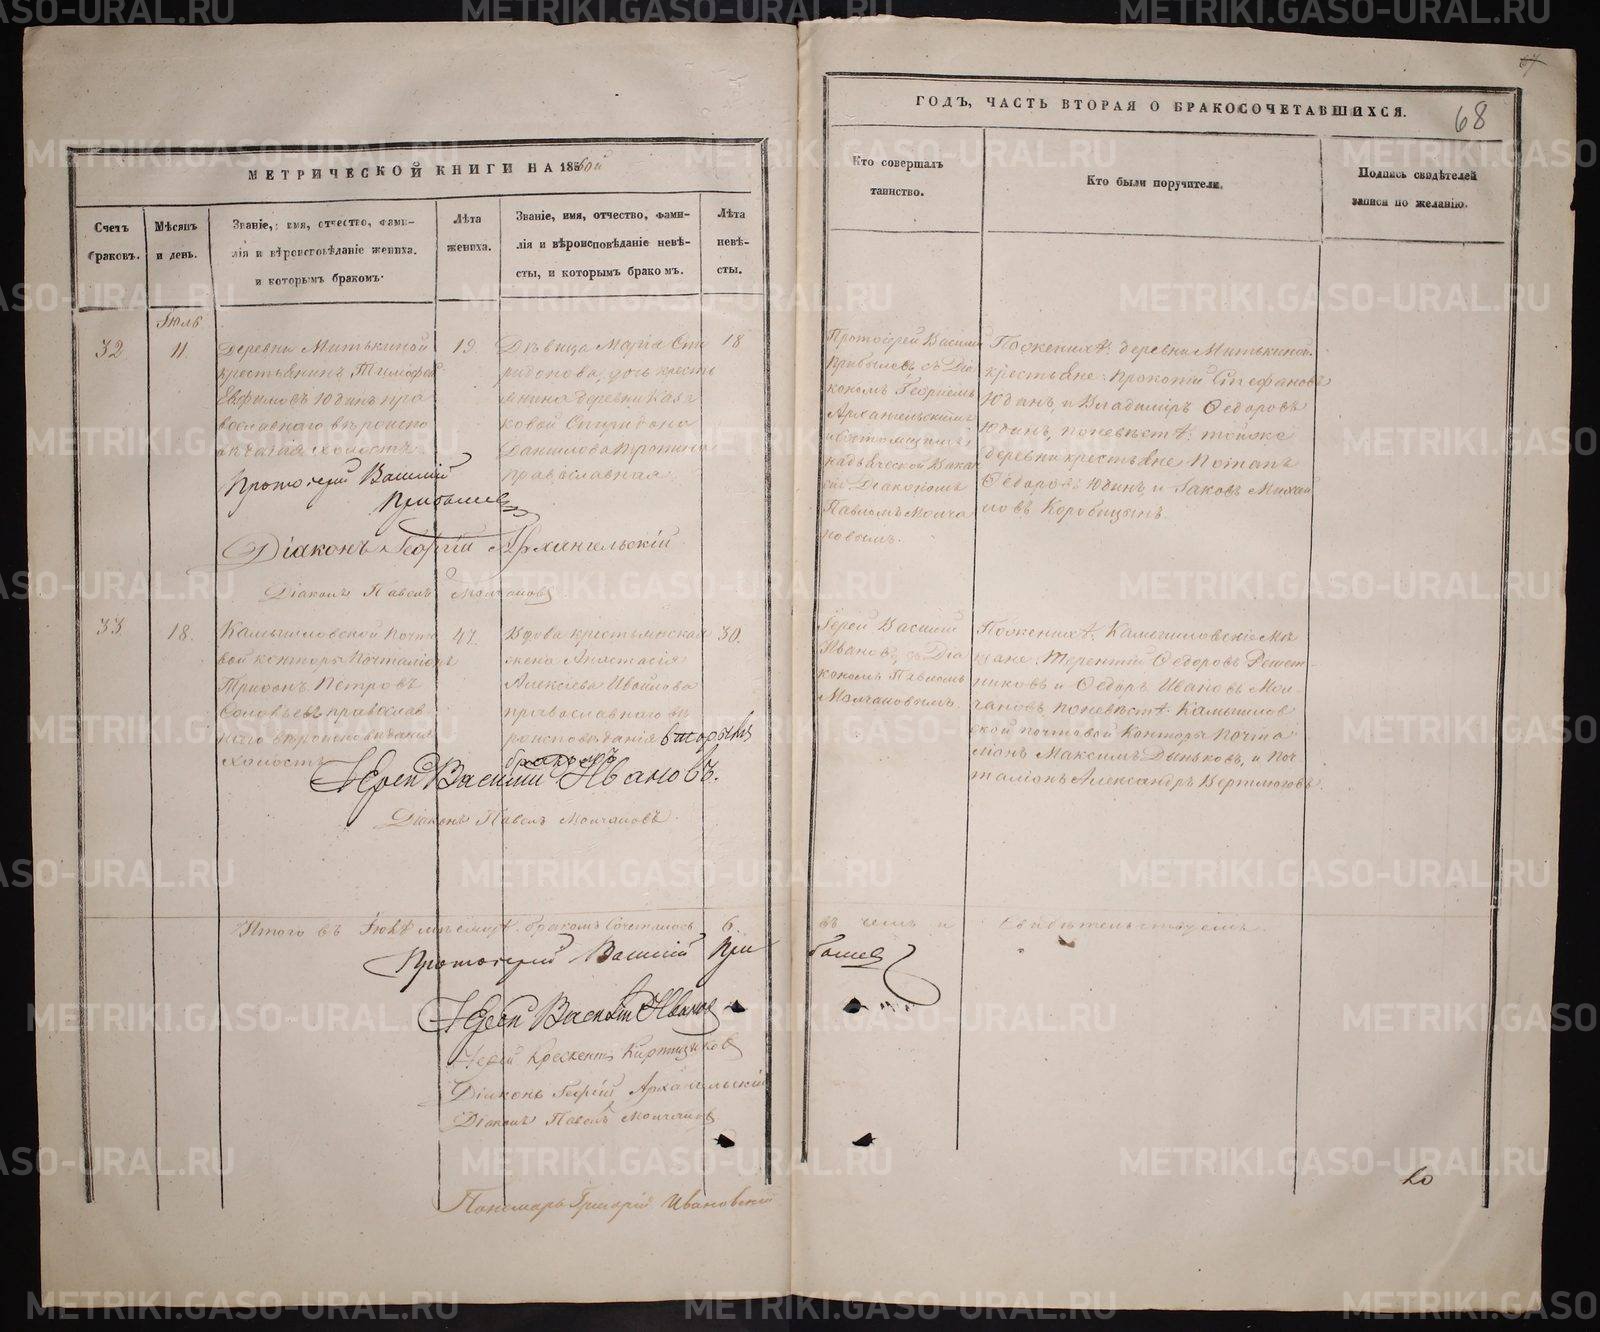 МЕТРИЧЕСКОЙ КНИГИ НА 185
Счетъ браковъ.
Мѣсяцъ и день.
Званіе, имя, отчество, фами-
лія и вѣроисповѣданіе жениха.
и которымъ бракомъ.
Лѣта жениха.
Званіе, имя, отчество, фами-
лія и вѣроисповѣданіе невѣ-
сты, и которымъ бракомъ.
Лѣта невѣ-
сты.
Іюль
32.
11.
Деревни Митькиной
крестьянинъ Тимофей
Евфимовъ Юдинъ пра
вославнаго вѣроиспо
вѣданія холостъ
19.
Дѣвица Марія Спи
ридонова, дочь кресть
янина деревни Каза
ковой Спиридона
Данилова
православная
18
Протоіерей Василій
Прибылевъ
Діаконъ Георгій Архангельскій
Діаконъ Павелъ Молчановъ
33.
18.
Камышловской Почто
вой конторы Почталіонъ
Трифонъ Петровъ
Соловьевъ православ
наго вѣроисповѣданія
холостъ
47.
Вдова крестьянская
жена Анастасія
Алексіева
православнаго вѣ
роисповѣданія вторымъ
бракомъ
30.
Іерей Василій Ивановъ.
Діаконъ Павелъ Молчановъ.
Итого въ Іюлѣ мѣсяцѣ бракомъ сочеталось 6.
Протоіерей Василій При
Іерей Василій Ивановъ
Іерей Крескентъ
Діаконъ Георгій Архангельскій
Діаконъ Павелъ Молчановъ
Пономарь Григорій Ивановскій
67
68
ГОДЪ, ЧАСТЬ ВТОРАЯ О БРАКОСОЧЕТАВШИХСЯ.
Кто совершалъ
таинство.
Кто были поручители.
Подпись свидѣтелей
записи по желанію.
Протоіерей Василій
Прибылевъ съ Діа
кономъ Георгіемъ
Архангельскимъ
и Состоящимъ
на дьяческой Вакан
сіи Діакономъ
Павломъ Молча
новымъ.
По женихѣ: деревни Митькиной
крестьяне: Прокопій Стефановъ
Юдинъ, и Владиміръ Ѳедоровъ
Юдинъ, по невѣстѣ: тойже
деревни крестьяне Потапъ
Ѳедоровъ Юдинъ, и Іаковъ Михай
ловъ Коробицынъ.
Іерей Василій
Ивановъ, съ Діа
кономъ Павломъ
Молчановымъ.
По женихѣ: Камышловскіе Мѣ
щане: Терентій Ѳедоровъ Решет-
никовъ и Ѳедоръ Ивановъ Мол-
чановъ, по невѣстѣ: Камышлов
ской почтовой Конторы Почта
ліонъ Максимъ Дыньковъ, и Поч
таліонъ Александръ
въ чемъ и свидѣтельствуемъ
былевъ